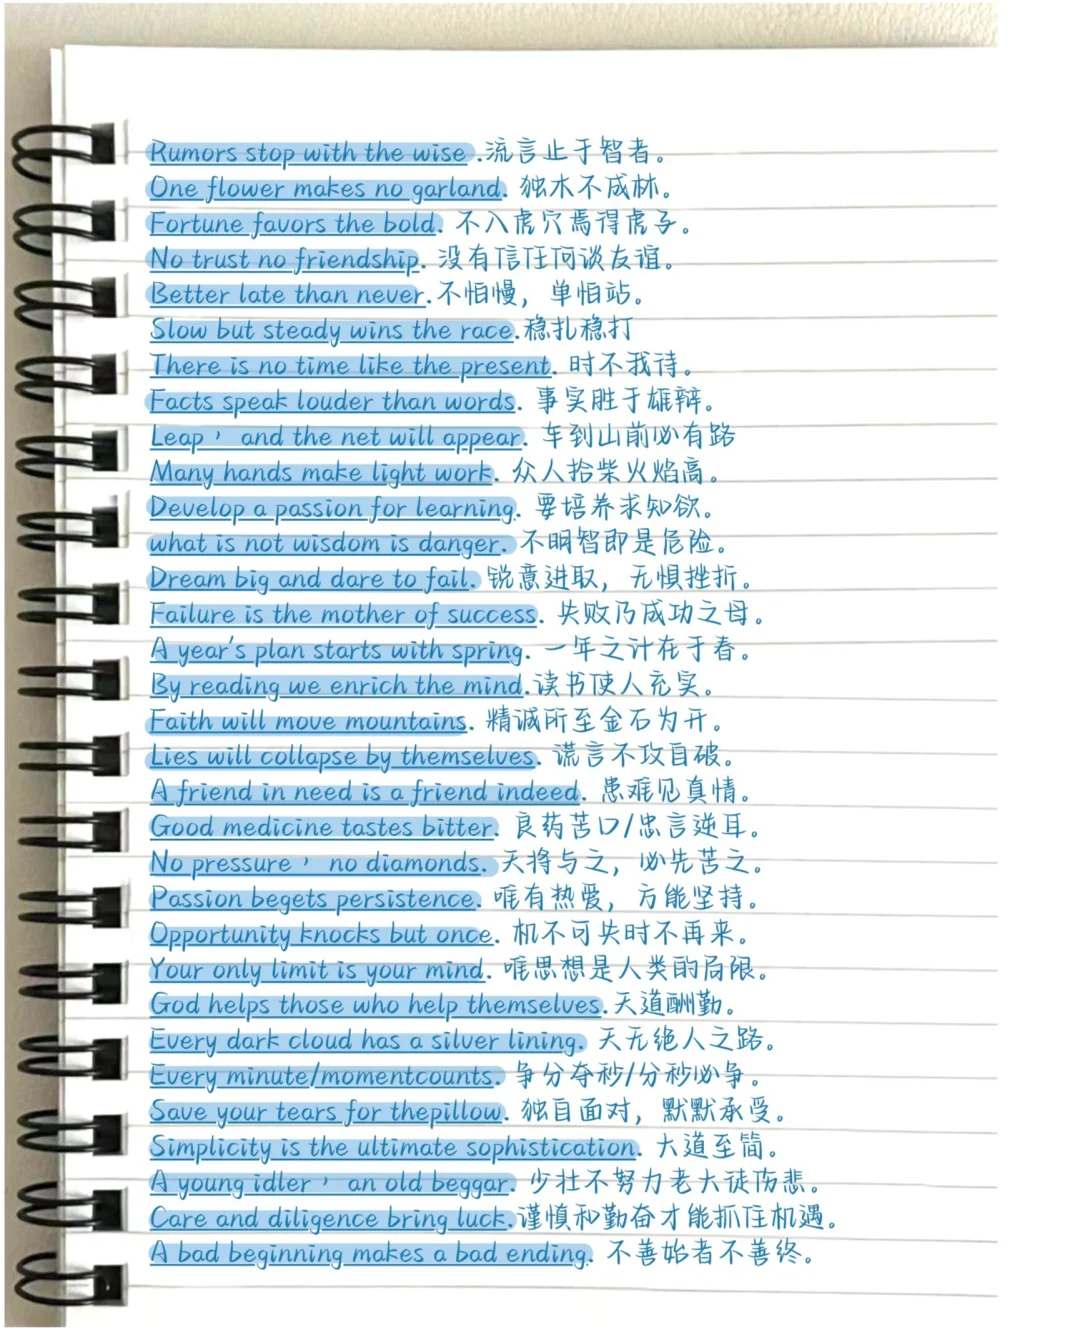 Rumors stop with the wise .流言止于智者。
One flower makes no garland. 独木不成林。
Fortune favors the bold. 不入虎穴焉得虎子。
No trust no friendship. 没有信任何谈友谊。
Better late than never.不怕慢，单怕站。
Slow but steady wins the race.稳扎稳打
There is no time like the present. 时不我待。
Facts speak louder than words. 事实胜于雄辩。
Leap， and the net will appear. 车到山前必有路
Many hands make light work. 众人拾柴火焰高。
Develop a passion for learning. 要培养求知欲。
what is not wisdom is danger. 不明智即是危险。
Dream big and dare to fail. 锐意进取，无惧挫折。
Failure is the mother of success. 失败乃成功之母。
A year's plan starts with spring. 一年之计在于春。
By reading we enrich the mind.读书使人充实。
Faith will move mountains. 精诚所至金石为开。
Lies will collapse by themselves. 谎言不攻自破。
A friend in need is a friend indeed. 患难见真情。
Good medicine tastes bitter. 良药苦口/忠言逆耳。
No pressure， no diamonds. 天将与之，必先苦之。
Passion begets persistence. 唯有热爱，方能坚持。
Opportunity knocks but once. 机不可失时不再来。
Your only limit is your mind. 唯思想是人类的局限。
God helps those who help themselves.天道酬勤。
Every dark cloud has a silver lining. 天无绝人之路。
Every minute/momentcounts. 争分夺秒/分秒必争。
Save your tears for thepillow. 独自面对，默默承受。
Simplicity is the ultimate sophistication. 大道至简。
A young idler， an old beggar. 少壮不努力老大徒伤悲。
Care and diligence bring luck.谨慎和勤奋才能抓住机遇。
A bad beginning makes a bad ending. 不善始者不善终。